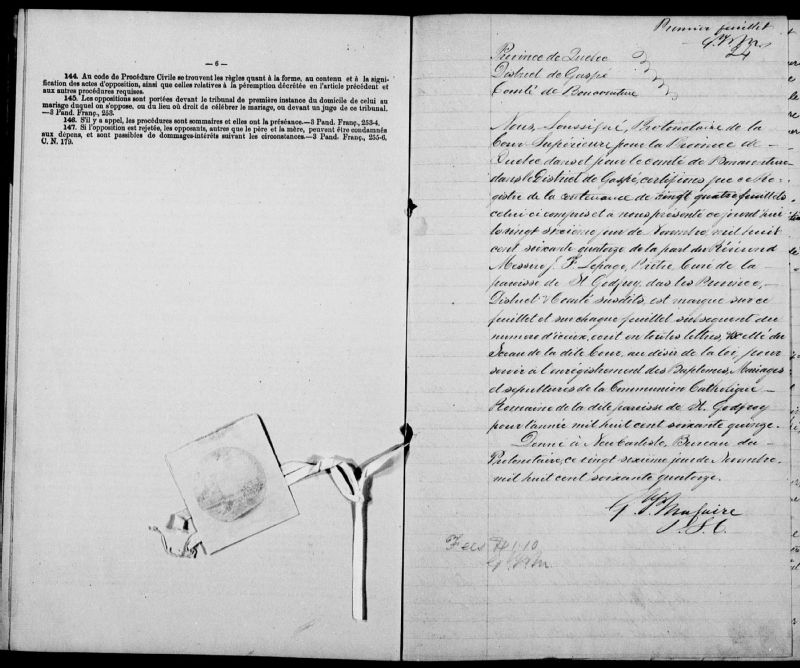 — 6 —
144. Au code de Procédure Civile se trouvent les règles quant à la forme, au contenu et à la signi-
fication des actes d'opposition, ainsi que celles relatives à la péremption décrétée en l'article précédent et
aux autres procédures requises.
145. Les oppositions sont portées devant le tribunal de première instance du domicile de celui au
mariage duquel on s'oppose, ou du lieu où doit se célébrer le mariage, ou devant un juge de ce tribunal.
—3 Pand. Franç., 253.
146. S'il y a appel, les procédures sont sommaires et elles ont la préséance.—3 Pand. Franç., 253-4.
147. Si l'opposition est rejetée, les opposants, autres que le père et la mère, peuvent être condamnés
aux dépens, et sont passibles de dommages-intérêts suivant les circonstances.—3 Pand. Franç., 255-6,
C. N. 179.
Premier feuillet
24
Province de Quebec
District de Gaspé
Comté de Bonaventure
Nous, Soussigné, Protonotaire de la
Cour Supérieure pour la Province de
Quebec dans et pour le comté de Bonaventure
dans le District de Gaspé, certifions que ce Re-
gistre de la contenance de vingt quatre feuillets
celui ci compris et à nous présenté ce jourd'hui
le vingt sixième jour de Novembre, mil huit
cent soixante quatorze de la part du Révérend
Messire J. F. Lepage, Prêtre Curé de la
paroisse de St. Godfroy, das les Province,
District & Comté susdits, est marqué sur ce
feuillet et sur chaque feuillet subsequent du
numero d'iceux, écrit en toutes lettres, & scellé du
Sceau de la dite Cour, au désir de la loi, pour
servir à l'enrégistrement des Baptemes, Mariages
et sepultures de la Communion Catholique
Romaine de la dite paroisse de St. Godfroy
pour l'année mil huit cent soixante quinze.
Donné à New Carlisle, Bureau du
Protonotaire, ce vingt sixième jour de Novembre
mil huit cent soixante quatorze.
P. S. C.
Fees $1.10